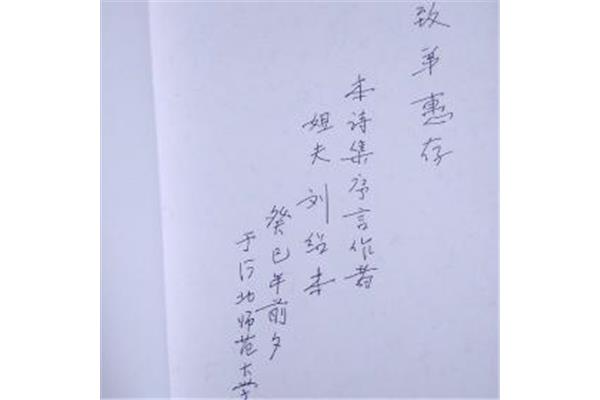 致弟惠存
本诗集序言作者
姐夫刘绍本
癸巳年前夕
于河北师范大学